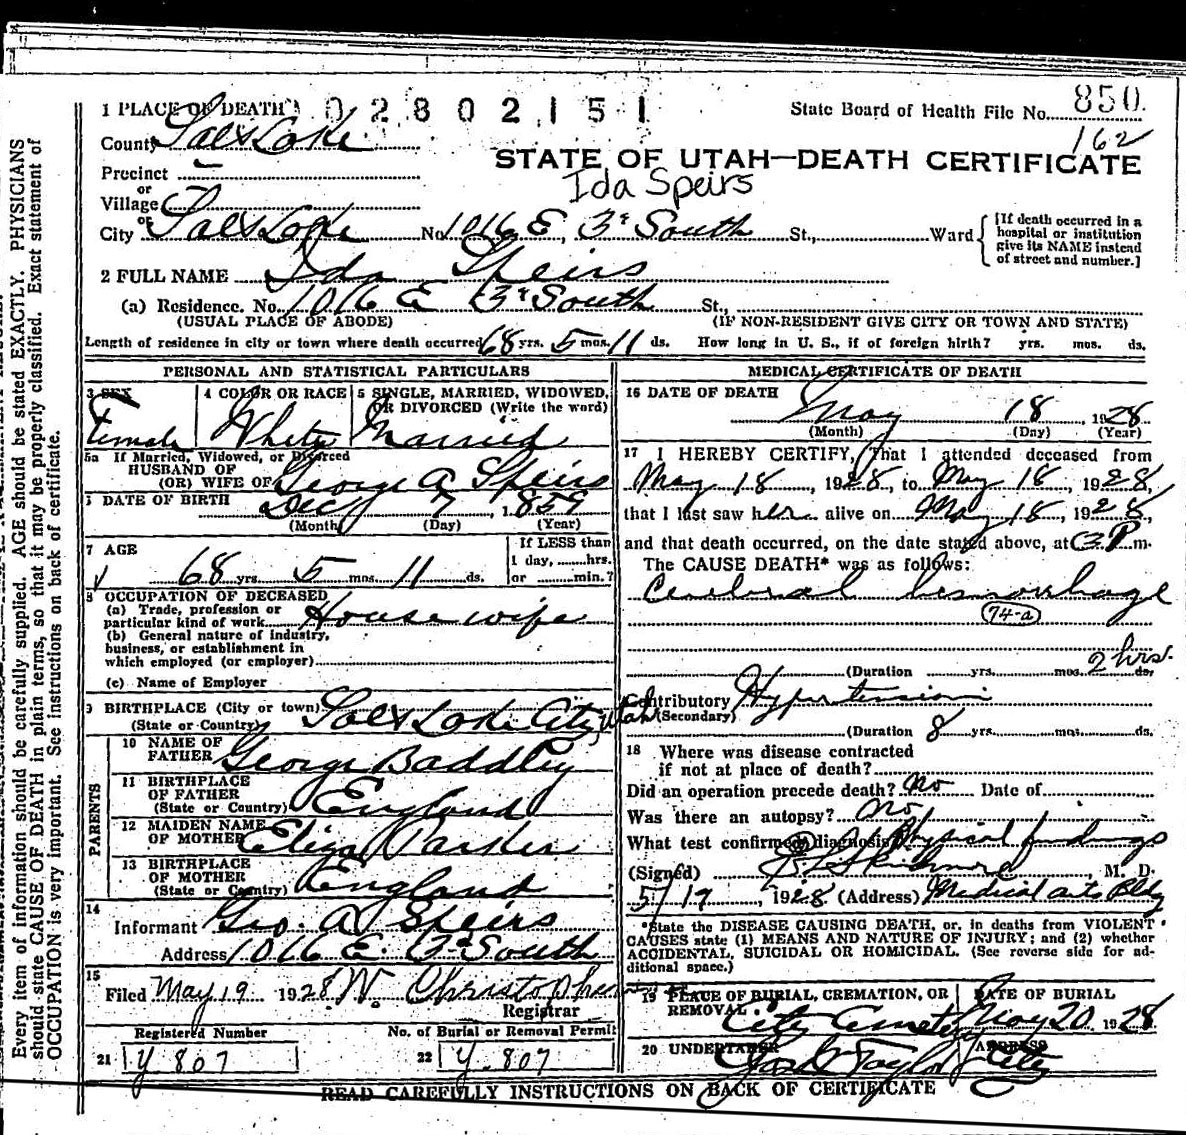 1 PLACE OF DEATH 02802151
State Board of Health File No. 850
162
County Salt Lake
STATE OF UTAH—DEATH CERTIFICATE
Precinct
Ida Speirs
or
Village
or
City Salt Lake No. 1016 E, 3rd South St., Ward
[If death occurred in a hospital or institution give its NAME instead of street and number.]
2 FULL NAME Ida Speirs
(a) Residence. No. 1016 E 3rd South St.,
(USUAL PLACE OF ABODE) (IF NON-RESIDENT GIVE CITY OR TOWN AND STATE)
Length of residence in city or town where death occurred 68 yrs. 5 mos. 11 ds. How long in U. S., if of foreign birth? yrs. mos. ds.
PERSONAL AND STATISTICAL PARTICULARS
3 SEX
Female
4 COLOR OR RACE
White
5 SINGLE, MARRIED, WIDOWED, OR DIVORCED (Write the word)
Married
5a If Married, Widowed, or Divorced
HUSBAND OF
(OR) WIFE OF George A Speirs
DATE OF BIRTH Dec 7, 1859
(Month) (Day) (Year)
7 AGE
68 yrs. 5 mos. 11 ds.
If LESS than
1 day, hrs.
or min.?
8 OCCUPATION OF DECEASED
(a) Trade, profession or
particular kind of work House wife
(b) General nature of industry,
business, or establishment in
which employed (or employer)
(c) Name of Employer
9 BIRTHPLACE (City or town) Salt Lake City, Utah
(State or Country)
PARENTS
10 NAME OF
FATHER George Baddley
11 BIRTHPLACE
OF FATHER
(State or Country) England
12 MAIDEN NAME
OF MOTHER Eliza Parker
13 BIRTHPLACE
OF MOTHER
(State or Country) England
14
Informant Geo. A. Speirs
Address 1016 E. 3rd South
15
Filed May 19 1928 W. Christopherson
Registrar
Registered Number
21 Y 807
No. of Burial or Removal Permit
22 Y 807
MEDICAL CERTIFICATE OF DEATH
16 DATE OF DEATH
May 18 1928
(Month) (Day) (Year)
17 I HEREBY CERTIFY, That I attended deceased from
May 18, 1928, to May 18, 1928,
that I last saw her alive on May 18, 1928,
and that death occurred, on the date stated above, at 3 P m.
The CAUSE DEATH* was as follows:
Cerebral hemorrhage
74-a
(Duration yrs. mos. 2 hrs. ds.
Contributory Hypertension
(Secondary)
(Duration 8 yrs. mos. ds.
18 Where was disease contracted
if not at place of death?
Did an operation precede death? No Date of
Was there an autopsy? No
What test confirmed diagnosis? Physical findings
(Signed) M. D.
5/19, 1928 (Address) Medical arts Bldg
*State the DISEASE CAUSING DEATH, or, in deaths from VIOLENT
CAUSES state (1) MEANS AND NATURE OF INJURY; and (2) whether
ACCIDENTAL, SUICIDAL OR HOMICIDAL. (See reverse side for ad-
ditional space.)
19 PLACE OF BURIAL, CREMATION, OR
REMOVAL
City Cemetery
DATE OF BURIAL
May 20 1928
20 UNDERTAKER
Taylor
ADDRESS
City
READ CAREFULLY INSTRUCTIONS ON BACK OF CERTIFICATE
Every item of information should be carefully supplied. AGE should be stated EXACTLY. PHYSICIANS
should state CAUSE OF DEATH in plain terms, so that it may be properly classified. Exact statement of
OCCUPATION is very important. See instructions on back of certificate.